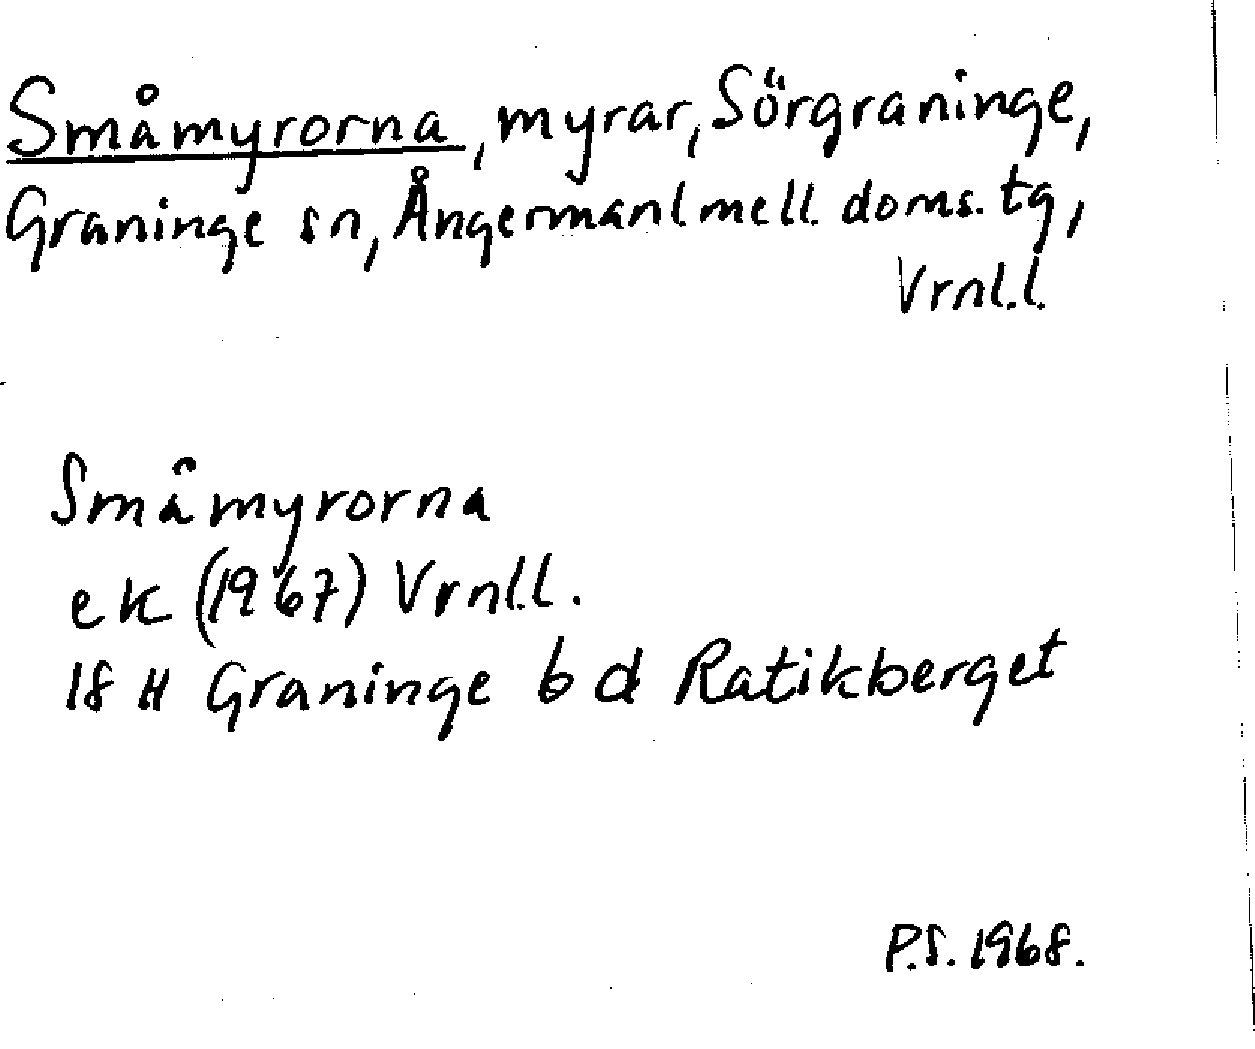 Småmyrorna, myrar, Sörgraninge,
Graninge sn, Ångermanl mell. doms. tg,
Vrnl.l.
Småmyrorna
ek (1967) Vrnl.l.
18 H Graninge 6 d Ratikberget
P.S. 1968.